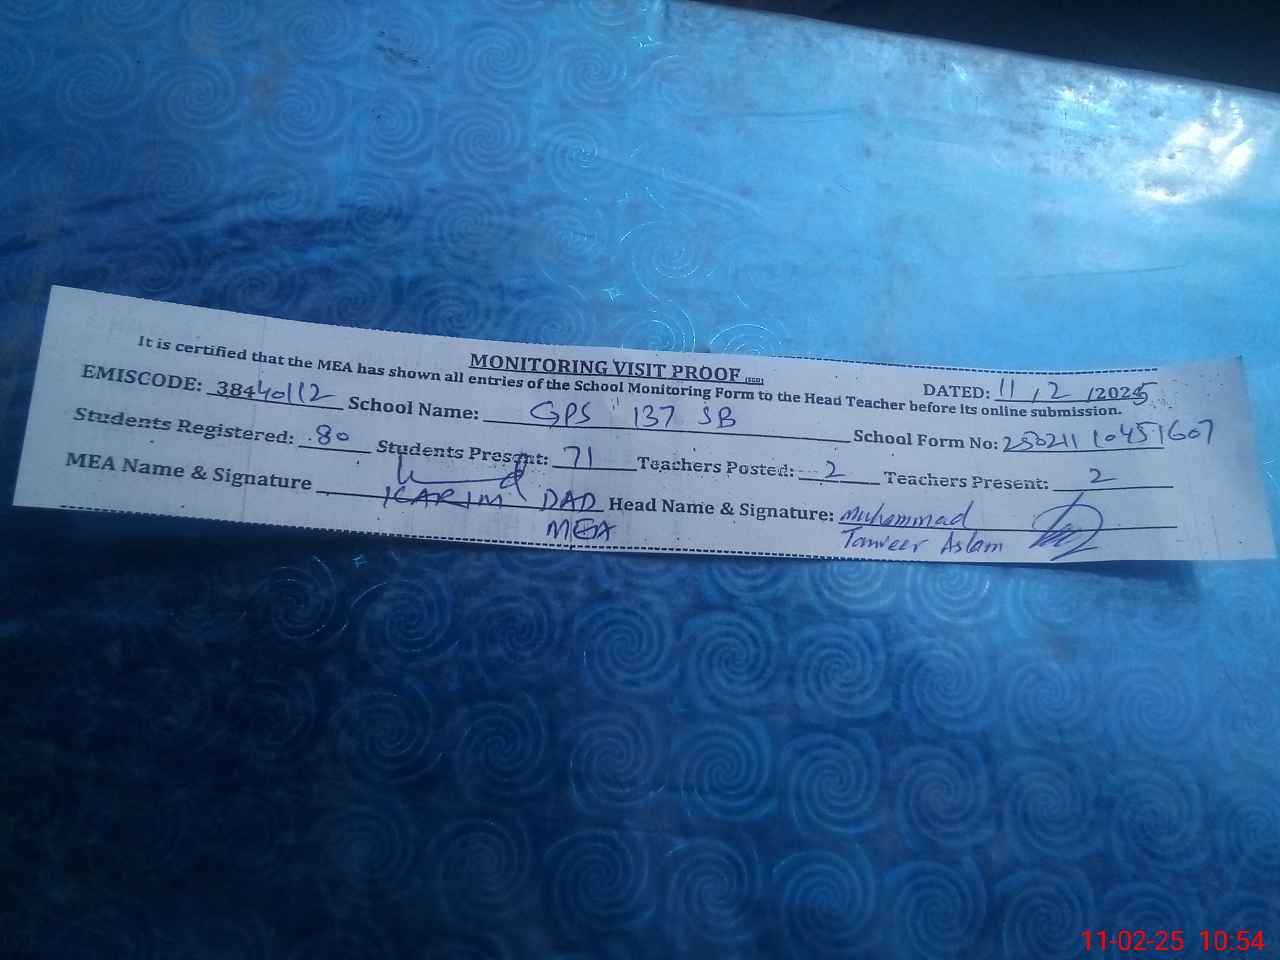 MONITORING VISIT PROOF
DATED: 11 / 2 /2025
It is certified that the MEA has shown all entries of the School Monitoring Form to the Head Teacher before its online submission.
EMISCODE: 38440112 School Name: GPS 137 SB School Form No: 250211 10451607
Students Registered: 80 Students Present: 71 Teachers Posted: 2 Teachers Present: 2
MEA Name & Signature KARIM DAD Head Name & Signature: Muhammad
MEA Tanveer Aslam
11-02-25 10:54